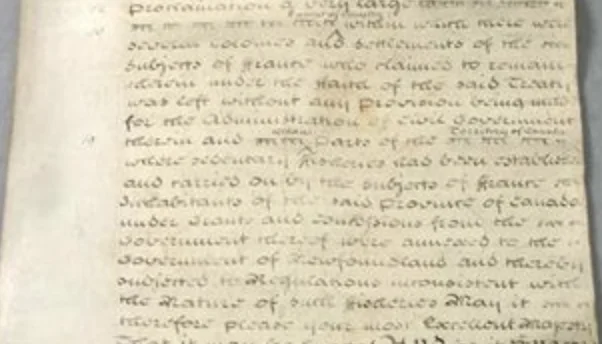 proclamation a very large
within which there were
several colonies and settlements of the
subjects of France who claimed to remain
therein under the Faith of the said Treaty
was left without any provision being made
for the Administration of Civil Government
certain Territory of Canada
therein and parts of the
where sedentary Fisheries had been established
and carried on by the subjects of France
Inhabitants of the said Province of Canada
under Grants and Concessions from the
Government thereof were annexed to the
Government of Newfoundland and thereby
subjected to Regulations inconsistent with
the Nature of such Fisheries May it
therefore please your most Excellent Majesty
That it may